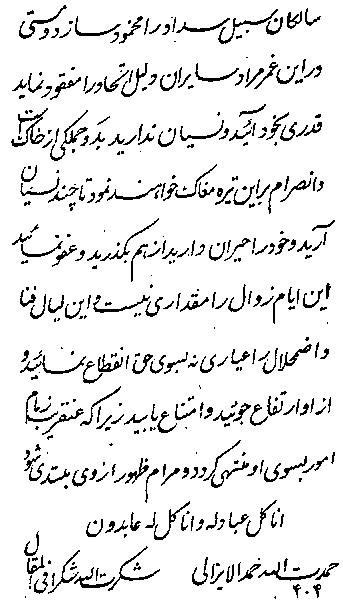 سالکان سبیل سداد را محمود ساز دوستی
در این غمر مراد سایران دلیل اتحاد را مفقود نماید
قدری بخود آئید و نسیان ندارید بدو جملگی از خاکست
و انصرام بر این تیره مغاک خواهند نمود تا چند نسیان
آرید و خود را حیران دارید از هم بگذرید و عفو نمائید
این ایام زوال را مقداری نیست و این لیال فنا
و اضمحلال را عیاری نه بسوی حق انقطاع نمائید و
از او ارتفاع جوئید و امتناع یابید زیرا که عنقریب زمام
امور بسوی او منتهی گردد و مرام ظهور از وی مبتدی شود
انا کل عباد له و انا کل له عابدون
حمدت الله حمد الایزالی شکرت الله شکرا فی المقال
۴۰۴